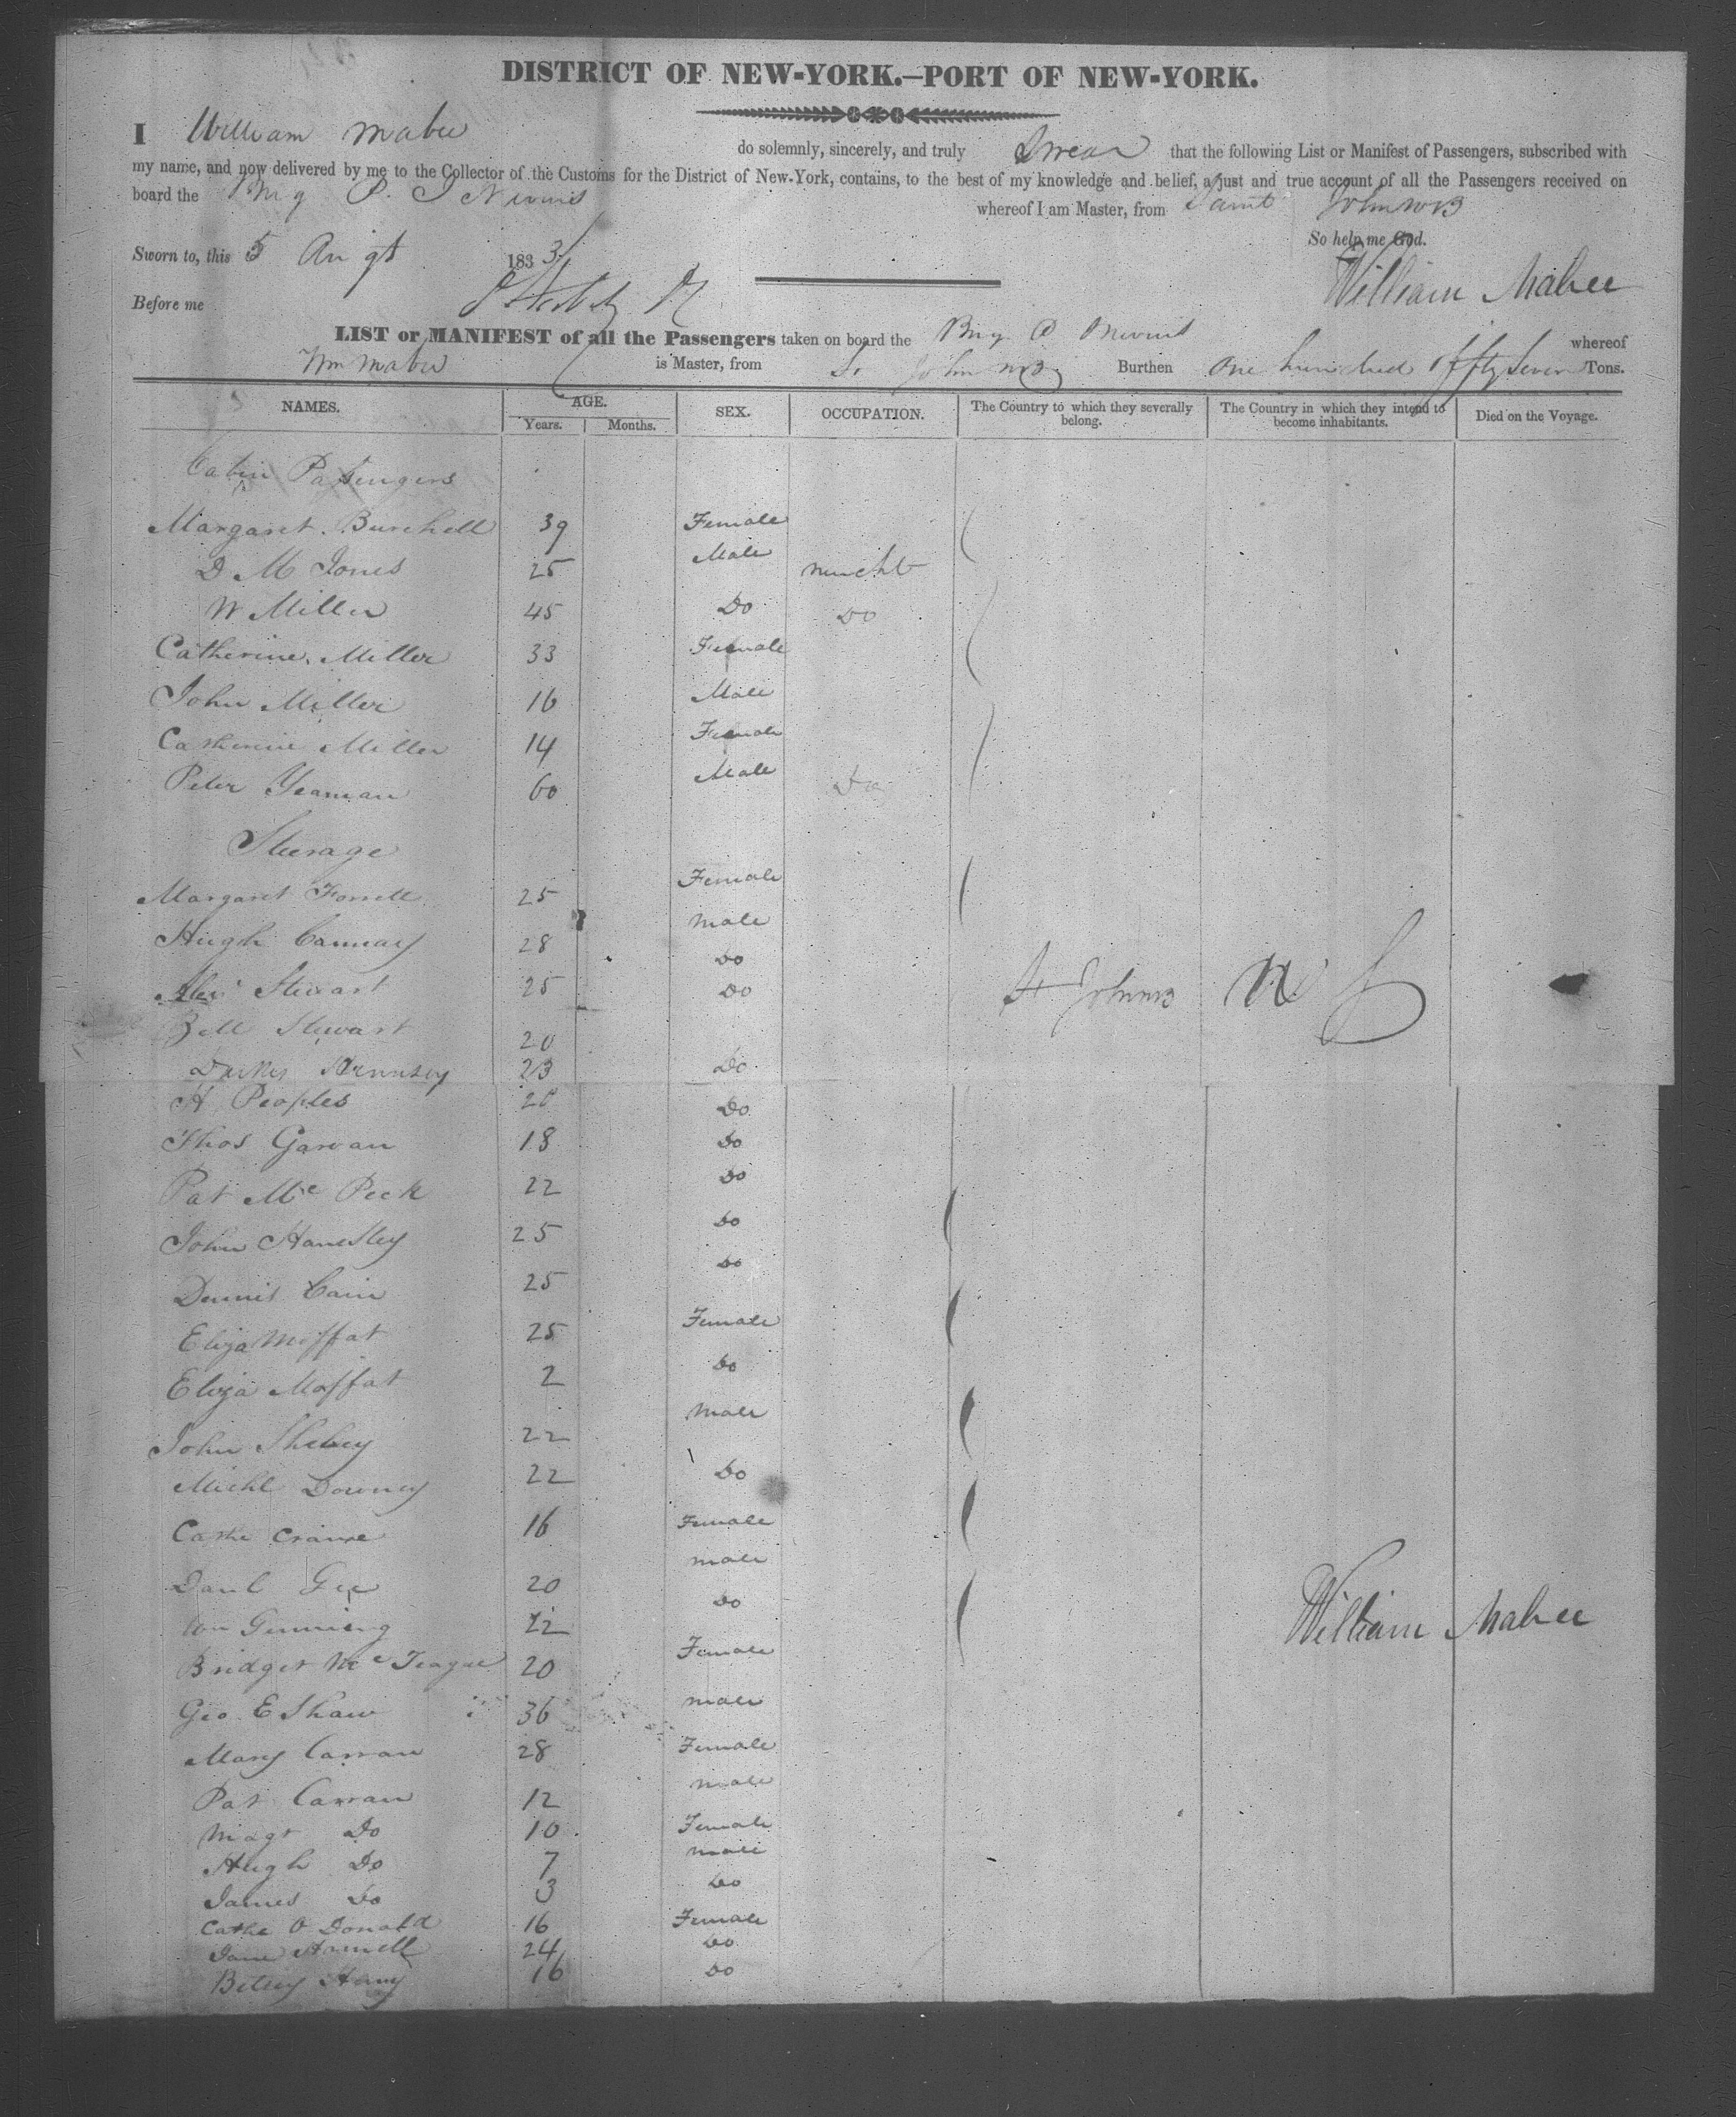 DISTRICT OF NEW-YORK.—PORT OF NEW-YORK.
I William Mabee do solemnly, sincerely, and truly Swear that the following List or Manifest of Passengers, subscribed with
my name, and now delivered by me to the Collector of the Customs for the District of New-York, contains, to the best of my knowledge and belief, a just and true account of all the Passengers received on
board the Brig P. I Nevius whereof I am Master, from Saint John NB
So help me God.
Sworn to, this 5 Augt 1833
William Mabee
Before me
LIST or MANIFEST of all the Passengers taken on board the Brig P Nevius whereof
Wm Mabee is Master, from St John NB Burthen One hundred & fifty Seven Tons.
NAMES. AGE. SEX. OCCUPATION. The Country to which they severally belong. The Country in which they intend to become inhabitants. Died on the Voyage.
Years. Months.
Cabin Passengers
Margaret Burchell 39 Female
D M Jones 25 Male Mercht
W Miller 45 Do Do
Catherine Miller 33 Female
John Miller 16 Male
Catherine Miller 14 Female
Peter Yeaman 60 Male Do
Steerage
Margaret Forrell 25 Female
Hugh Cannary 28 Male
Do
Alexr Stewart 25 Do St John NB U S
Bell Stewart 20
23 Do
H Peoples 20 Do
Thos Garvan 18 Do
Pat Mc Peek 22 Do
John Handley 25 Do
Dennis Cain 25 Do
Eliza Moffat 25 Female
Eliza Moffat 2 Do
John Shehey 22 Male
Michl Downey 22 Do
Cathe Crane 16 Female
Danl Gee 20 Male
Wm Gunning 22 Do
William Mabee
Bridget Mc Teague 20 Female
Geo E Shaw 36 Male
Mary Carran 28 Female
Pat Carran 12 Male
Magt Do 10 Female
Hugh Do 7 Male
James Do 3 Do
Cathe O Donald 16 Female
Jane 24 Do
Betsey 16 Do